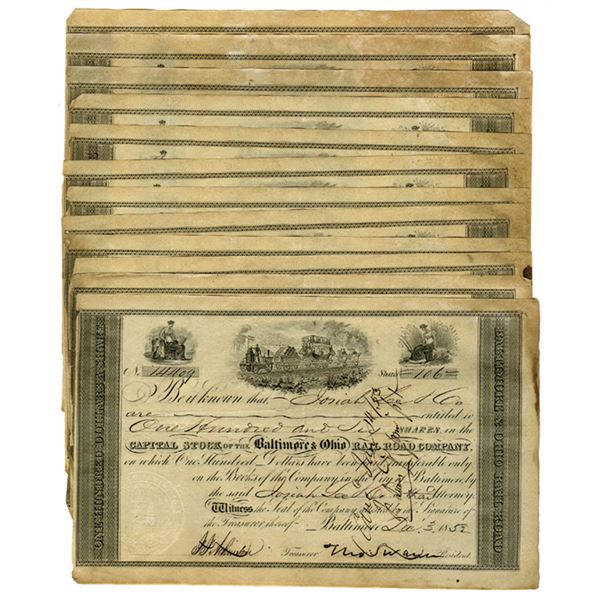 No. 14409 Shares 106
Be it known that Josiah Lee & Co
are entitled to
One Hundred and Six SHARES in the
CAPITAL STOCK OF THE Baltimore & Ohio RAIL ROAD COMPANY,
on which One Hundred Dollars have been paid transferable only
on the Books of the Company in the City of Baltimore by
the said Josiah Lee & Co Attorney.
Witness the Seal of the Company and the Signature of
the Treasurer thereof Baltimore Dec 3, 1852
Treasurer Tho Swann President
ONE HUNDRED DOLLARS A SHARE
BALTIMORE & OHIO RAIL ROAD